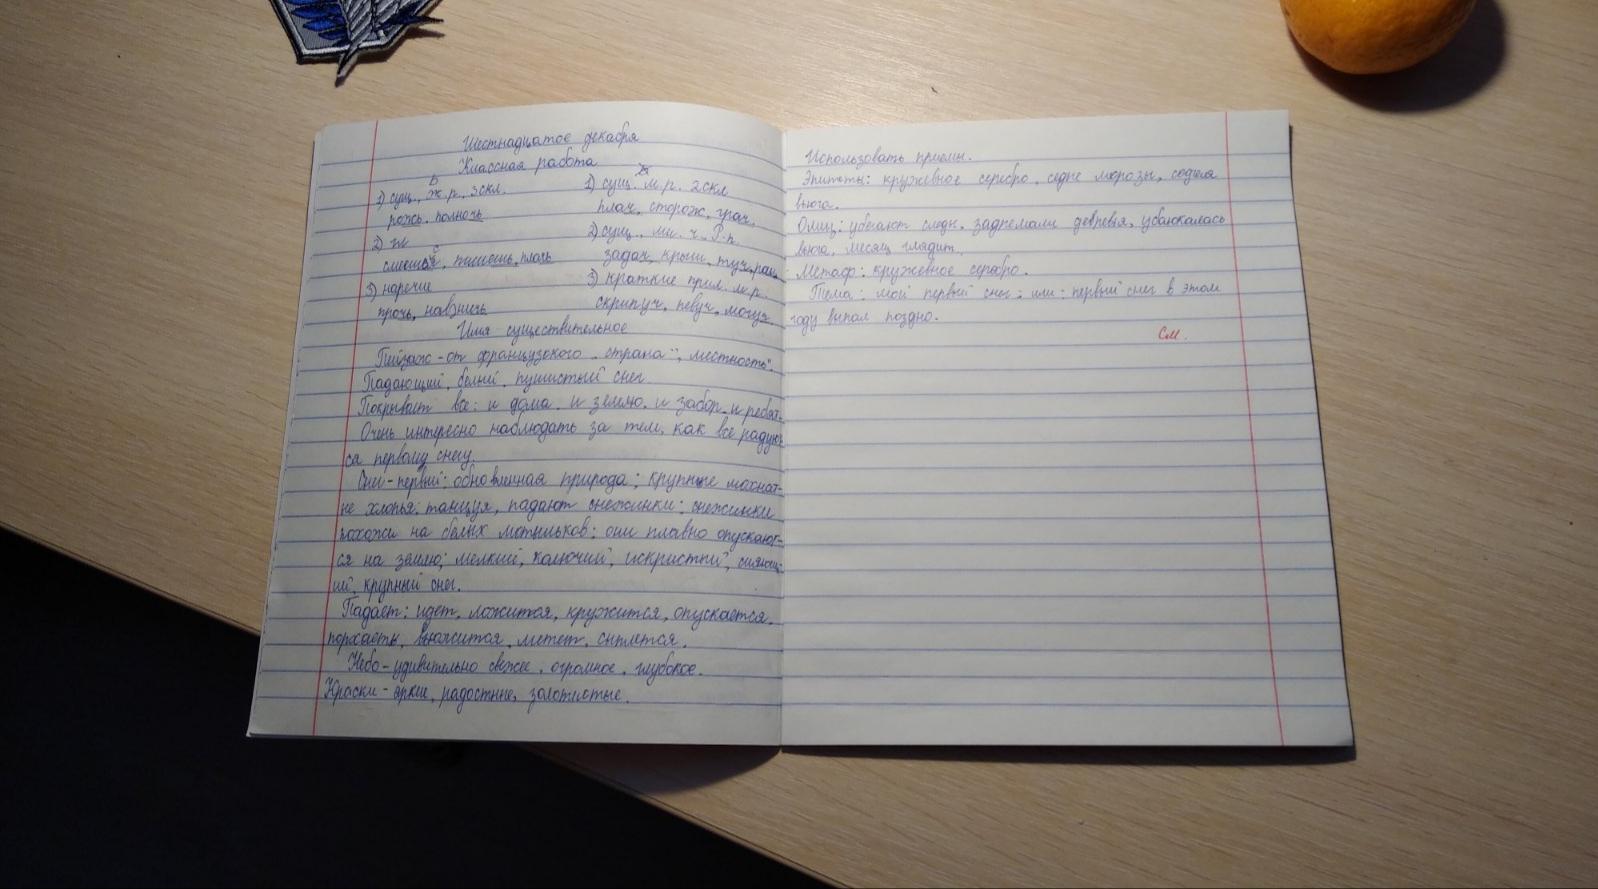 Шестнадцатое декабря
Классная работа
Ь
1) сущ., ж.р. 3скл.
рожь, полночь
2) гл
с
смеешься, пишешь, плачь
3) наречие
прочь, навзничь
Ь
1) сущ. м.р. 2скл
плач, сторож, грач,
2) сущ., мн. ч. Р.п.
задач, крыш, туч,
3) краткие прил. м.р.
скрипуч, певуч, могуч
Имя существительное
Пейзаж - от французского "страна", "местность".
Падающий, белый, пушистый снег.
Покрывает все: и дома, и землю, и забор, и ребят.
Очень интересно наблюдать за тем, как все радуют-
ся первому снегу.
Снег - первый: обновленная природа; крупные мохнат-
ые хлопья; танцуя, падают снежинки; снежинки
похожи на белых мотыльков; они плавно опускают-
ся на землю; мелкий, колючий, искристый,
крупный снег.
Падает: идет, ложится, кружится, опускается,
порхает, вьюжится, метет, сыплется.
Небо - удивительно свежее, огромное, глубокое.
Краски - яркие, радостные, золотистые.
Использовать приемы.
Эпитеты: кружевное серебро, седые морозы, седая
вьюга.
Олиц: убегают следы, задремали деревья, убаюкалась
вьюга, месяц глядит.
Метаф: кружевное серебро.
Тема: мой первый снег; или: первый снег в этом
году выпал поздно.
См.